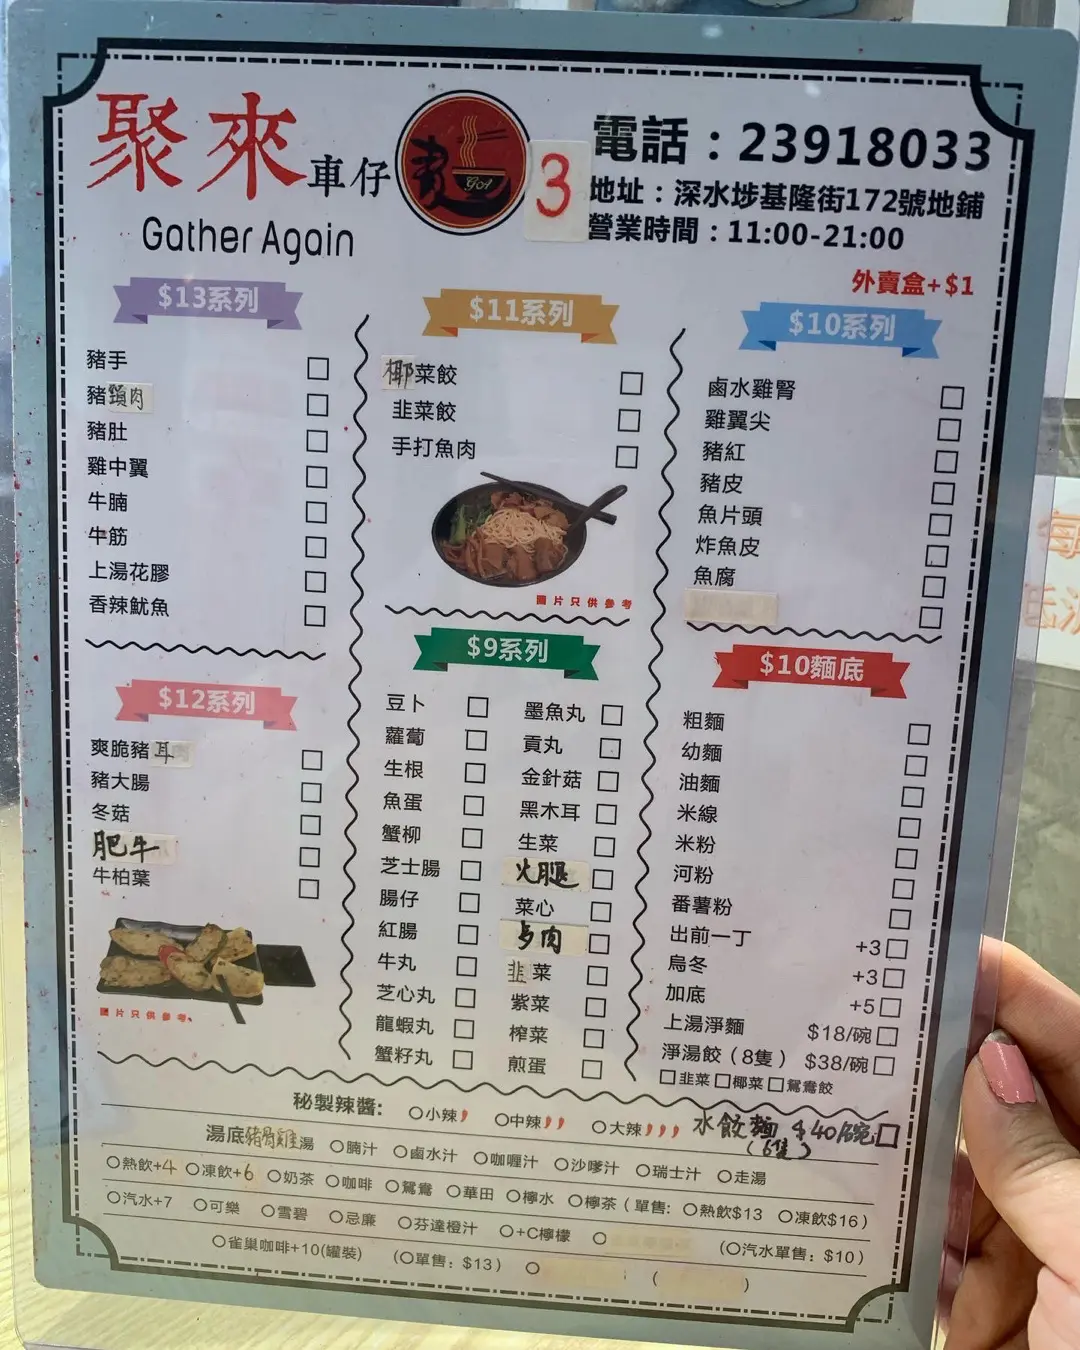 聚來車仔麵
GA
Gather Again
3
電話：23918033
地址：深水埗基隆街172號地鋪
營業時間：11:00-21:00
外賣盒+$1
$13系列
豬手
豬頸肉
豬肚
雞中翼
牛腩
牛筋
上湯花膠
香辣魷魚
$12系列
爽脆豬耳
豬大腸
冬菇
肥牛
牛柏葉
圖片只供參考
$11系列
椰菜餃
韭菜餃
手打魚肉
圖片只供參考
$9系列
豆卜
蘿蔔
生根
魚蛋
蟹柳
芝士腸
腸仔
紅腸
牛丸
芝心丸
龍蝦丸
蟹籽丸
墨魚丸
貢丸
金針菇
黑木耳
生菜
火腿
菜心
肉
韭菜
紫菜
榨菜
煎蛋
$10系列
鹵水雞腎
雞翼尖
豬紅
豬皮
魚片頭
炸魚皮
魚腐
$10麵底
粗麵
幼麵
油麵
米線
米粉
河粉
番薯粉
出前一丁 +3
烏冬 +3
加底 +5
上湯淨麵 $18/碗
淨湯餃（8隻） $38/碗
韭菜 椰菜 鴛鴦餃
秘製辣醬： 小辣 中辣 大辣 水餃麵 $40/碗
(6隻)
湯底豬骨雞湯 腩汁 鹵水汁 咖喱汁 沙嗲汁 瑞士汁 走湯
熱飲+4 凍飲+6 奶茶 咖啡 鴛鴦 華田 檸水 檸茶（單售: 熱飲$13 凍飲$16）
汽水+7 可樂 雪碧 忌廉 芬達橙汁 +C檸檬 （汽水單售：$10）
雀巢咖啡+10(罐裝) （單售：$13） （ ）